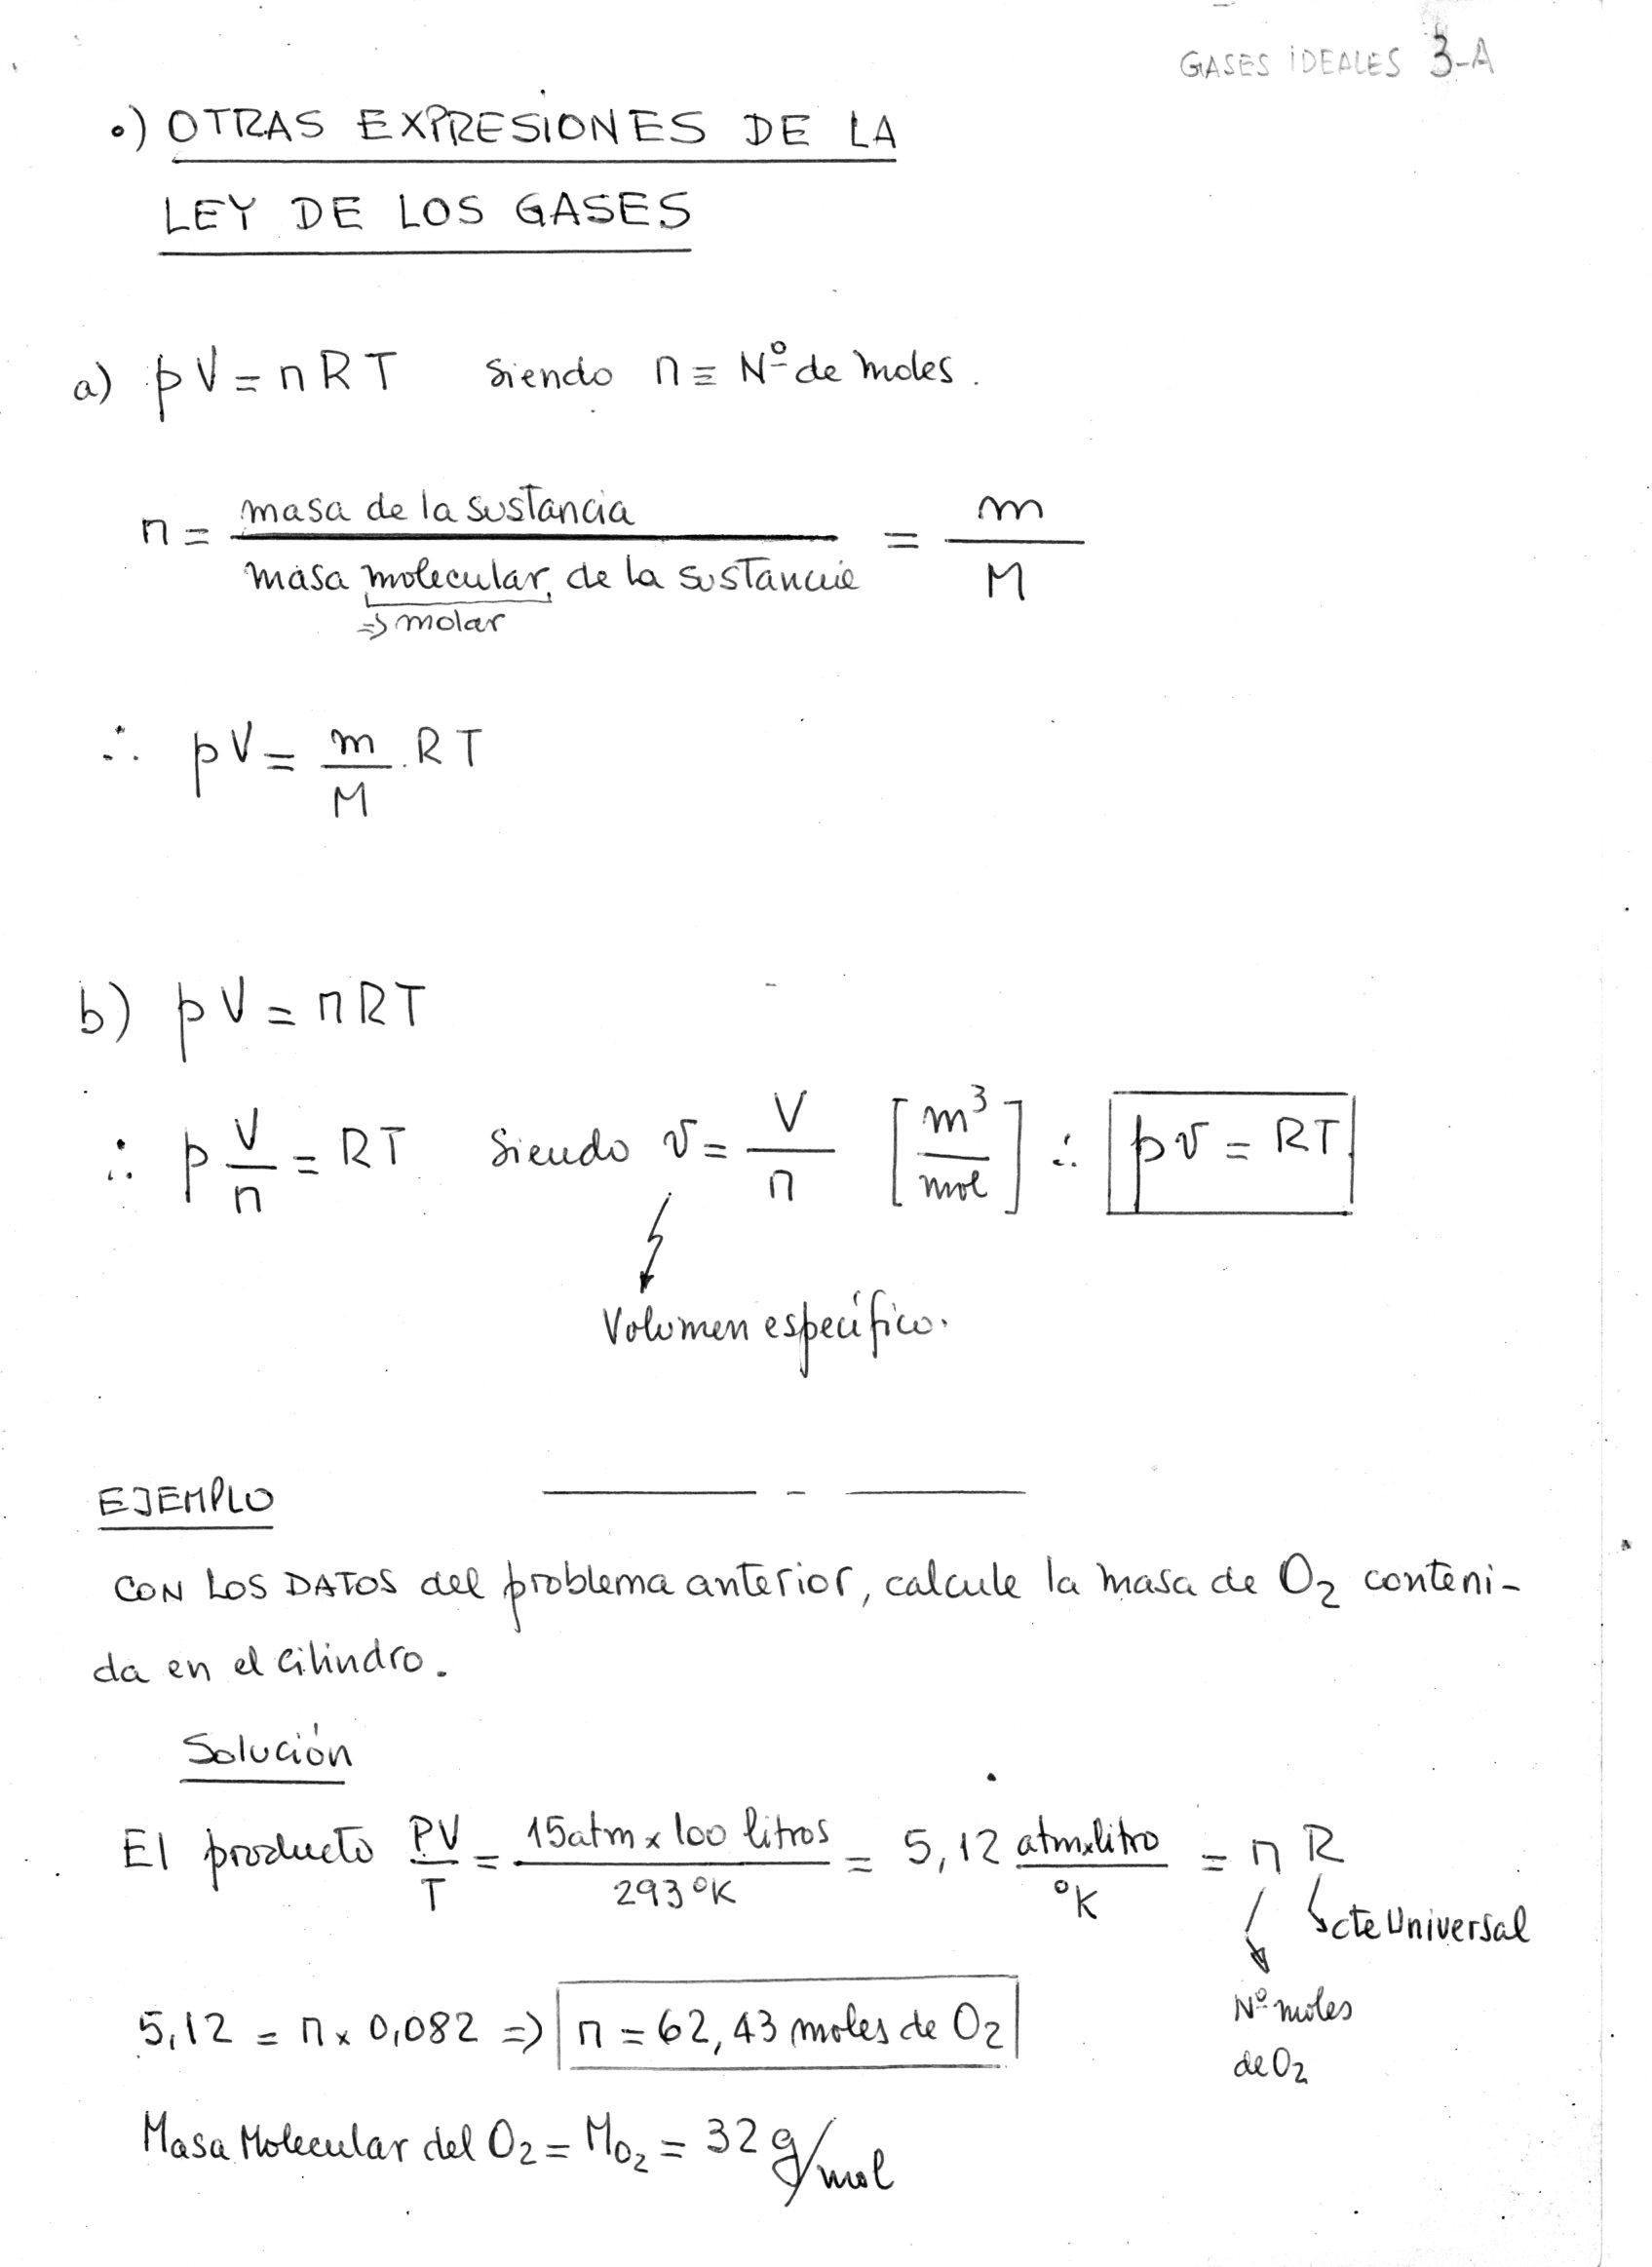 GASES IDEALES 3-A
•) OTRAS EXPRESIONES DE LA
LEY DE LOS GASES
a) pV = nRT siendo n ≡ Nº de moles.
n = masa de la sustancia / masa molecular de la sustancia = m / M
⇒ molar
∴ pV = m/M . RT
b) pV = nRT
∴ p V/n = RT siendo v = V/n [m³/mol] ∴ pv = RT
Volumen específico.
EJEMPLO
CON LOS DATOS del problema anterior, calcule la masa de O₂ conteni-
da en el cilindro.
Solución
El producto PV/T = 15 atm x 100 litros / 293 ºK = 5,12 atm x litro / ºK = n R
cte Universal
Nº moles
de O₂
5,12 = n x 0,082 ⇒ n = 62,43 moles de O₂
Masa Molecular del O₂ = M_O₂ = 32 g/mol